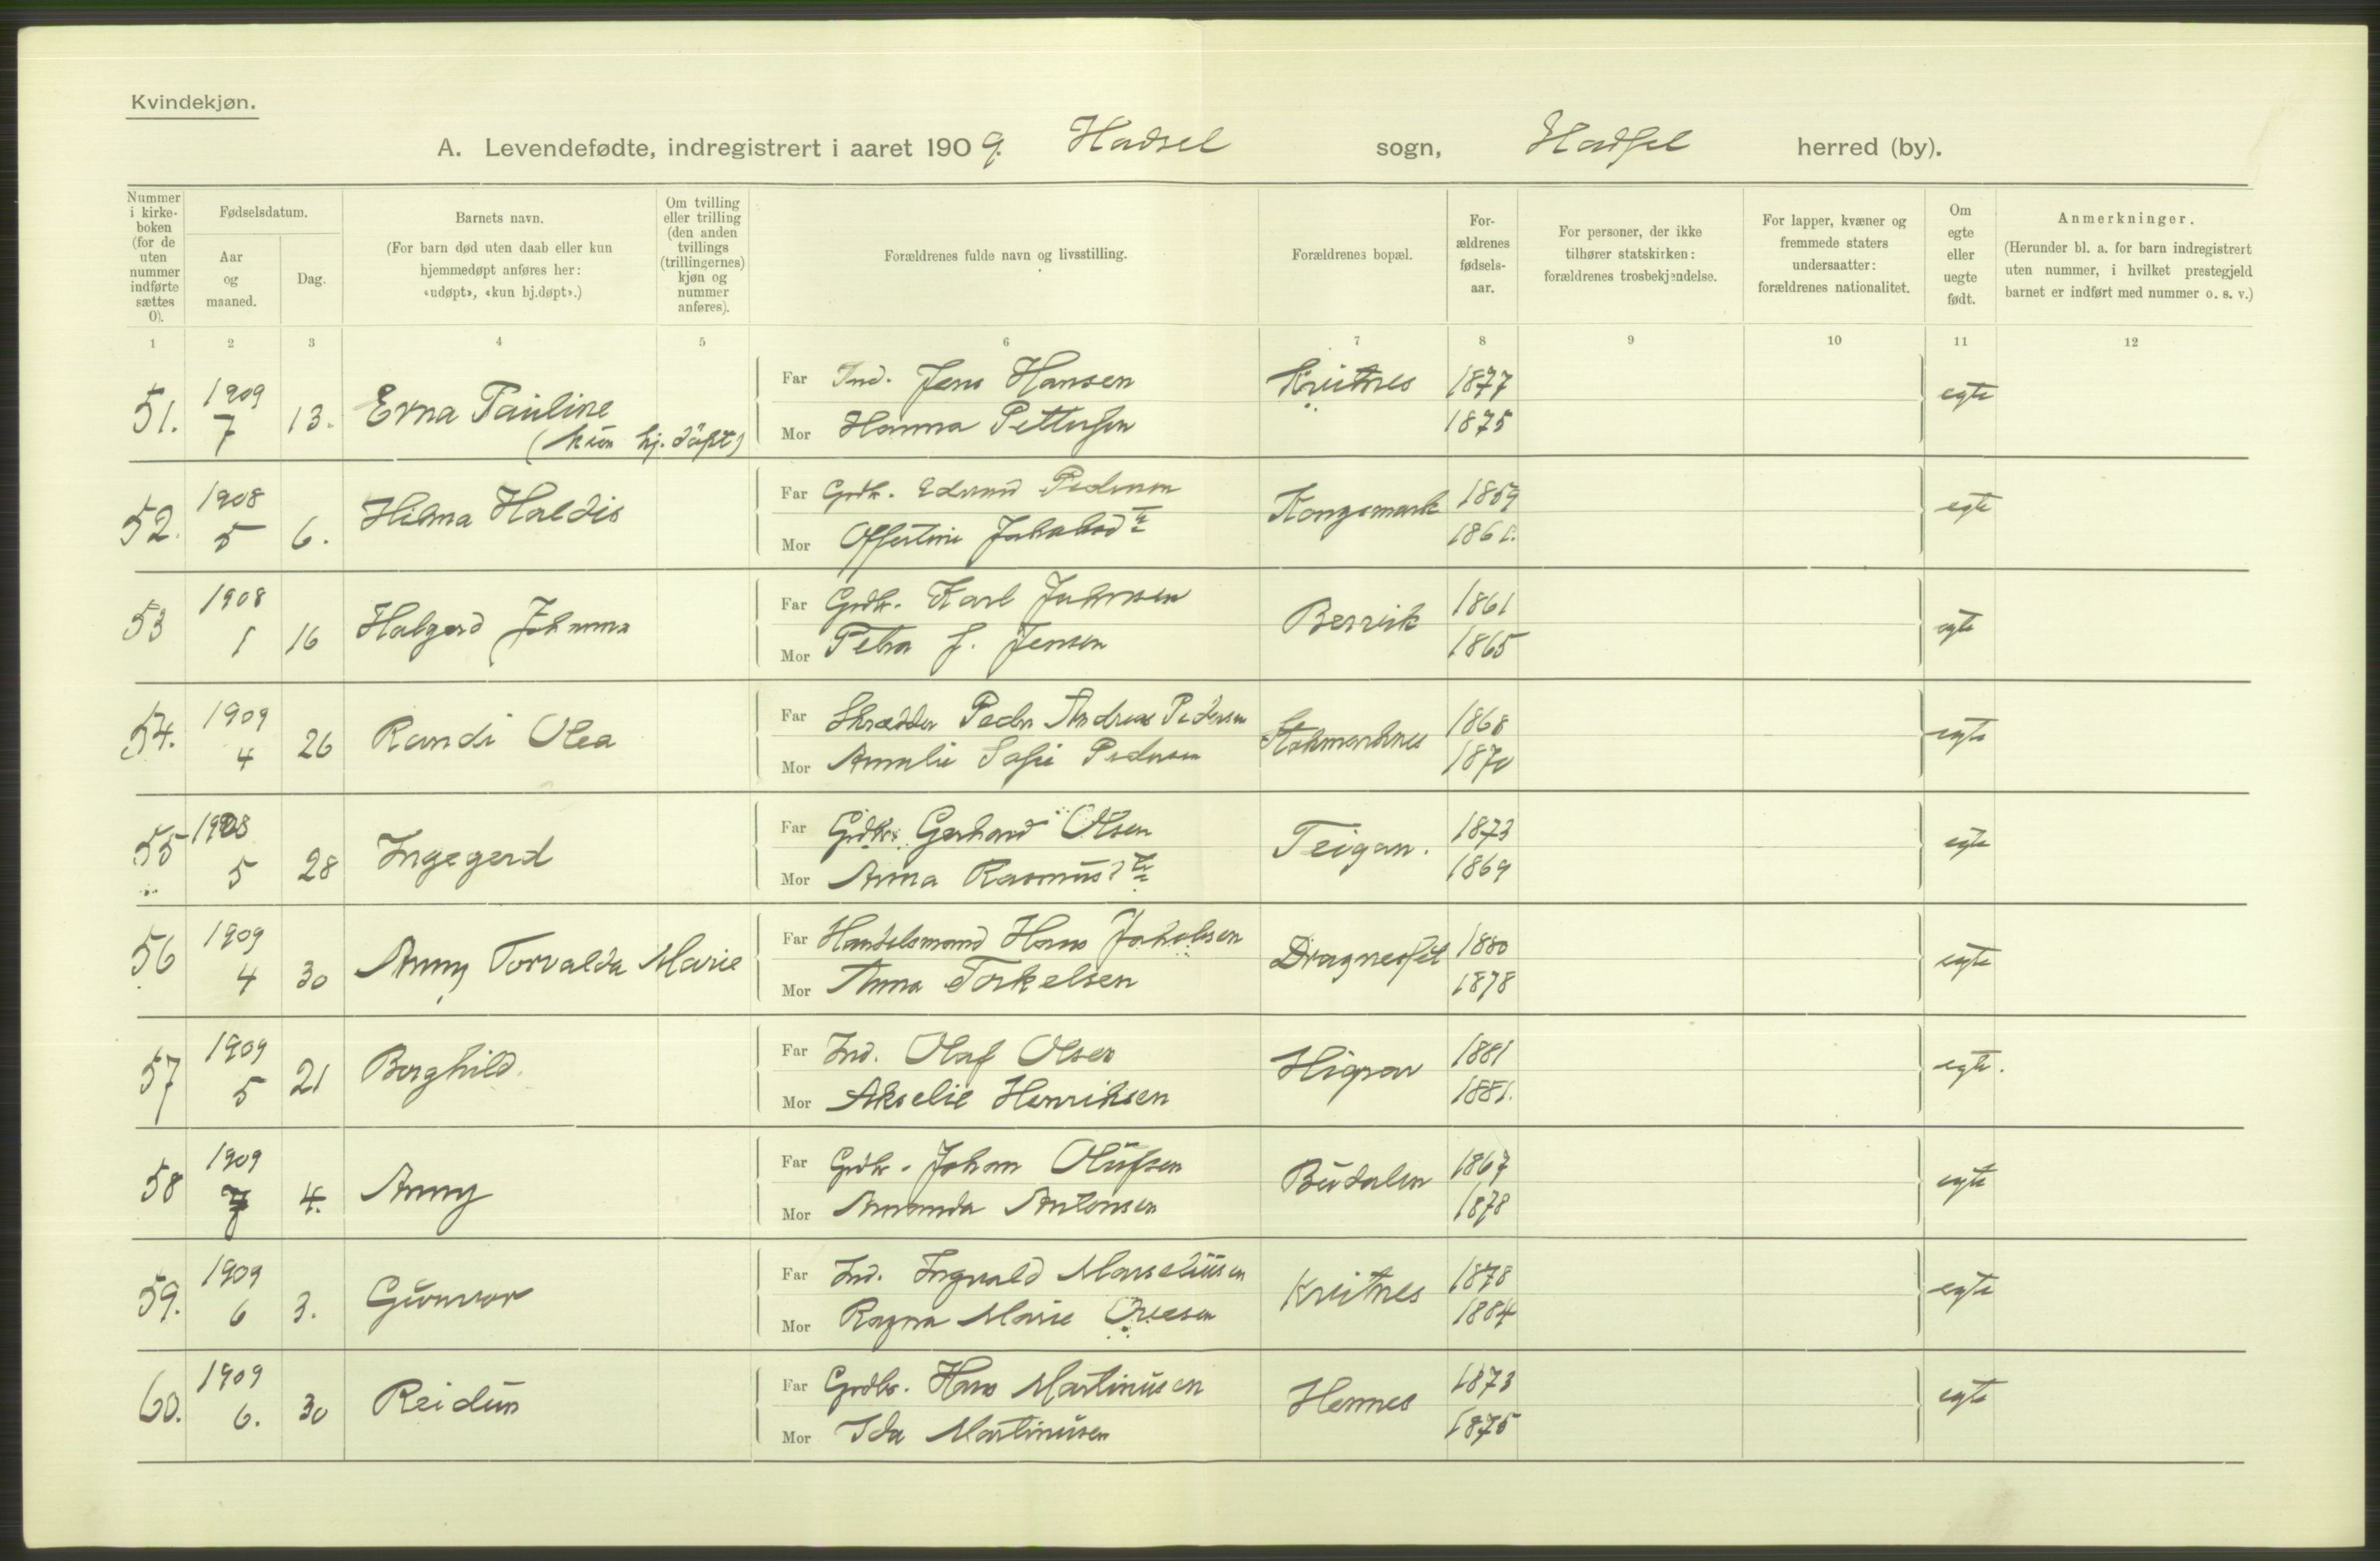 Kvindekjøn.
A. Levendefødte, indregistrert i aaret 1909. Hadsel sogn, Hadsel herred (by).
Nummer i kirke-boken (for de uten nummer indførte sættes 0).
Fødselsdatum.
Aar og maaned.
Dag.
Barnets navn.
(For barn død uten daab eller kun hjemmedøpt anføres her: «udøpt», «kun hj.døpt».)
Om tvilling eller trilling (den anden tvillings (trillingernes) kjøn og nummer anføres).
Forældrenes fulde navn og livsstilling.
Forældrenes bopæl.
For-ældrenes fødsels-aar.
For personer, der ikke tilhører statskirken: forældrenes trosbekjendelse.
For lapper, kvæner og fremmede staters undersaatter: forældrenes nationalitet.
Om egte eller uegte født.
Anmerkninger.
(Herunder bl. a. for barn indregistrert uten nummer, i hvilket prestegjeld barnet er indført med nummer o. s. v.)
1 2 3 4 5 6 7 8 9 10 11 12
51. 1909 7 13. Erna Pauline (kun hj. döpt) Far Ind. Jens Hansen Kvitnes 1877 egte
Mor Hanna Pettersen 1875
52. 1908 5 6. Hilma Haldis Far Grdbr. Edvard Pedersen Kongsmark 1859 egte
Mor Offertine Jakobsdtr 1861.
53 1908 1 16 Halgerd Johanna Far Grdbr. Karl Johnsen 1861 egte
Mor Petra J. Jensen 1865
54. 1909 4 26 Randi Olea Far Skrædder Peder Andreas Pedersen Stokmarknes 1868 egte
Mor Sofie Pedersen 1870
55 1908 5 28 Ingegerd Far Grdbr. Gerhard Olsen Teigan. 1873 egte
Mor Anna Rasmusdtr 1869
56 1909 4 30 Anny Torvalda Marie Far Handelsmand Hans Jakobsen 1880 egte
Mor Anna Torkelsen 1878
57 1909 5 21 Borghild. Far Ind. Olaf Olsen 1881 egte.
Mor Akselie Henriksen 1881.
58 1909 7 4. Anny Far Grdbr. Johan Olufsen Budalen 1867 egte
Mor Amanda Antonsen 1878
59. 1909 6 3. Gunvor Far Ind. Ingvald Marseliusen Kvitnes 1878 egte
Mor Ragna Marie 1884
60. 1909 6. 30 Reidun Far Grdbr. Hans Martinusen Hennes 1873 egte
Mor Ida Martinusen 1875